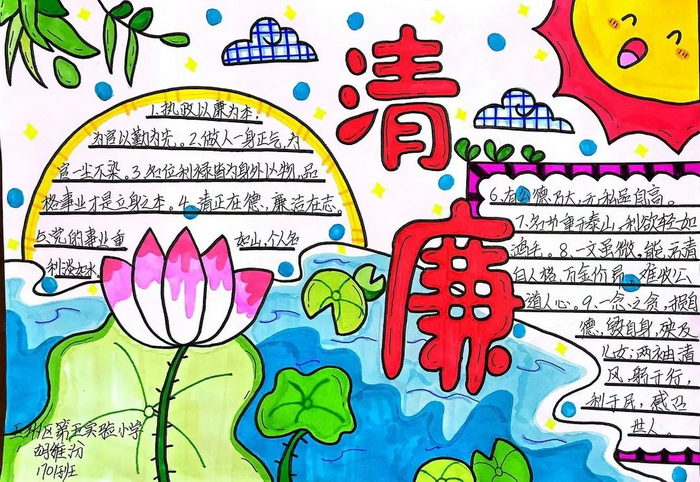 清
廉
1.执政以廉为本,
为官以勤为先。2.做人一身正气,为
官一尘不染。3.名位利禄皆为身外之物,品
格事业才是立身之本。4.清正在德,廉洁在志。
5.党的事业重 如山,个人
利添如水
6.有公德乃大,无私品自高。
7.名节重于泰山,利欲轻如
鸿毛。8.一文虽微,能弄清
白人格,万金价易,难收公
道人心。9.一念之贪,损
德、毁自身,殃及
儿女;两袖清
风,躬于行,
利于民,感迈
世人。
区第五实验小学
胡维
1701班